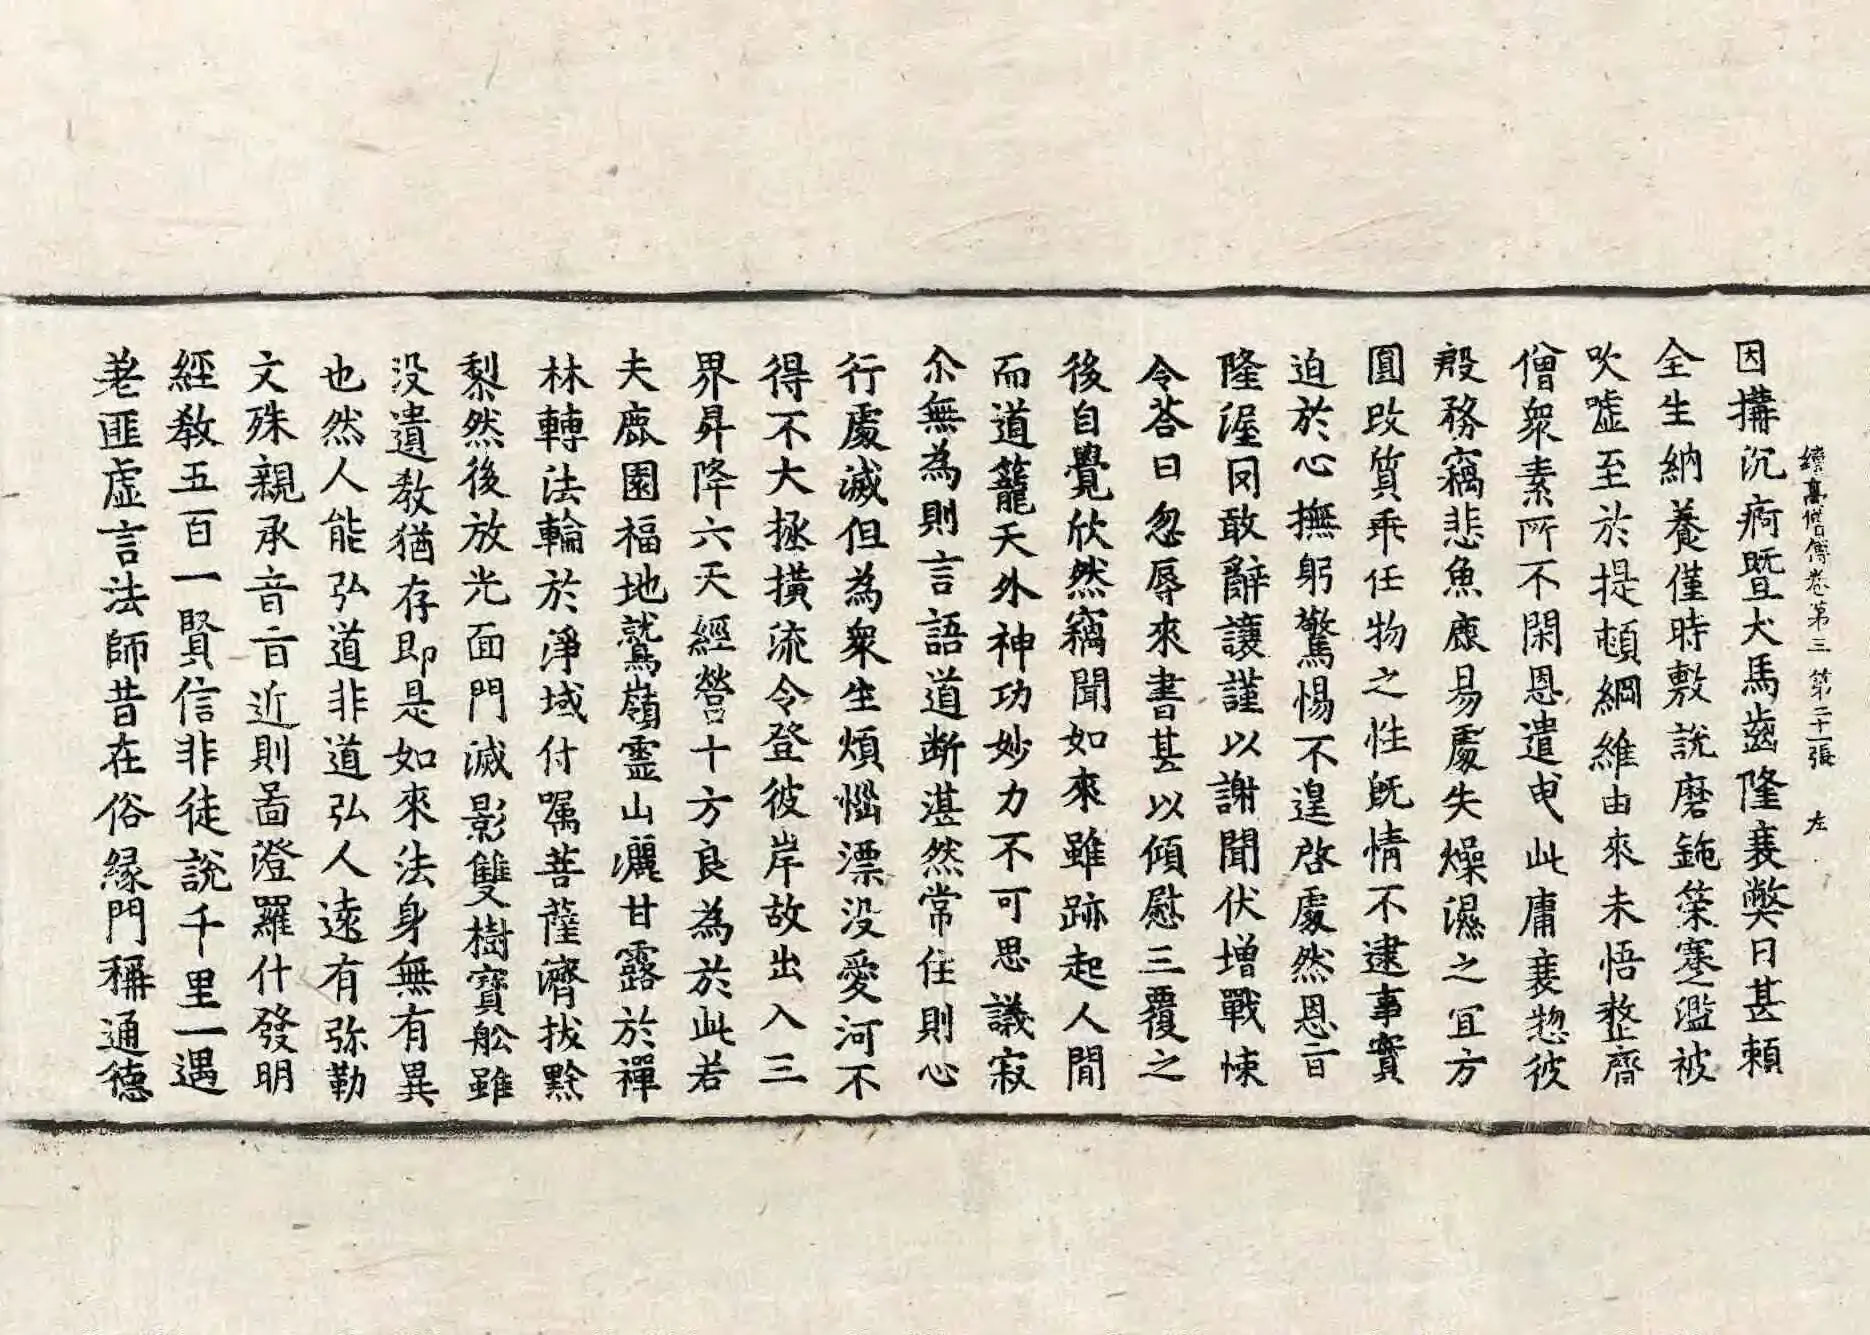 續高僧傳卷第三 第二十一張 左
因搆沉痾曁犬馬齒隆衰弊日甚頼
全生納養僅時敷說磨鈍策蹇濫被
吹嘘至於提頓綱維由來未悟整齊
僧衆素所不閑恩遣曳此庸衰惣彼
殷務竊悲魚鹿易處失燥濕之宜方
圓改質乖任物之性旣情不逮事實
迫於心撫躬驚惕不遑啓處然恩㫖
隆渥罔敢辭讓謹以謝聞伏增戰悚
令荅曰忽辱來書甚以傾慰三覆之
後自覺欣然竊聞如來雖跡起人間
而道籠天外神功妙力不可思議寂
尒無為則言語道断湛然常住則心
行處滅但為衆生煩惱漂没愛河不
得不大拯横流令登彼岸故出入三
界昇降六天經營十方良為於此若
夫鹿園福地鷲嶺靈山灑甘露於禪
林轉法輪於淨域付嘱菩薩濟拔黔
黎然後放光面門滅影雙樹寳舩雖
没遺教猶存即是如來法身無有異
也然人能弘道非道弘人遠有弥勒
文殊親承音㫖近則啚澄羅什發明
經教五百一賢信非徒說千里一遇
老匪虚言法師昔在俗縁門稱通德